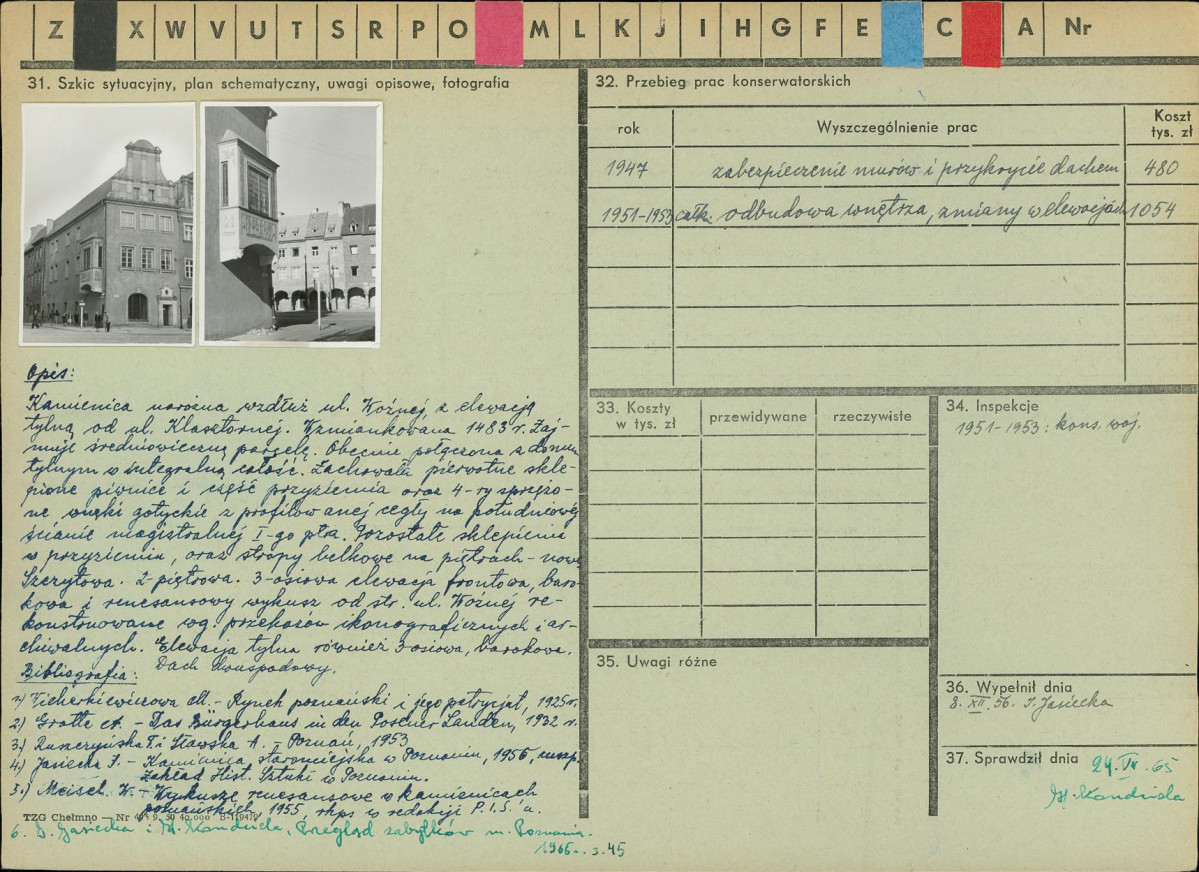 Z X W V U T S R P O M L K J I H G F E C A Nr
31. Szkic sytuacyjny, plan schematyczny, uwagi opisowe, fotografia
Opis:
Kamienica narożna wzdłuż ul. Woźnej z elewacją
tylną od ul. Klasztornej. Wzmiankowana 1483 r. Zaj-
muje średniowieczną parcelę. Obecnie połączona z domem
tylnym w integralną całość. Zachowała pierwotne skle-
pione piwnice i część przyziemia oraz 4-ry sprzężo-
ne wnęki gotyckie z profilowanej cegły na południowej
ścianie magistralnej I-go ptra. Pozostałe sklepienia
w przyziemiu, oraz stropy belkowe na piętrach - nowe
Szczytowa. 2-piętrowa. 3-osiowa elewacja frontowa, baro-
kowa i renesansowy wykusz od str. ul. Woźnej re-
konstruowane wg. przekazów ikonograficznych i ar-
chiwalnych. Elewacja tylna również 3-osiowa, barokowa.
Dach dwuspadowy.
Bibliografia:
1) Wicherkiewiczowa M. - Rynek poznański i jego patrycjat, 1925 r.
2) Grotte A. - Das Bürgerhaus in den Posener Landen, 1932 r.
3) Ruszczyńska T. i Sławska A. - Poznań, 1953
4) Jasiecka I. - Kamienica staromiejska w Poznaniu, 1956, maszp.
Zakład Hist. Sztuki w Poznaniu.
5.) Meisel W. - Wykusze renesansowe w kamienicach
poznańskich, 1955, rkps w redakcji P.I.S.'u.
TZG Chełmno — Nr
6. I. Jasiecka i M. Kondziela, Przegląd zabytków m. Poznania.
1965. s. 45
32. Przebieg prac konserwatorskich
rok Wyszczególnienie prac Koszt tys. zł
1947 zabezpieczenie murów i przykrycie dachem 480
1951-1953 całk. odbudowa wnętrza, zmiany w elewacjach 1054
33. Koszty w tys. zł przewidywane rzeczywiste
34. Inspekcje
1951-1953: kons. woj.
35. Uwagi różne
36. Wypełnił dnia
8. XII. 56. I. Jasiecka
37. Sprawdził dnia 24. VII. 65
H. Kondziela